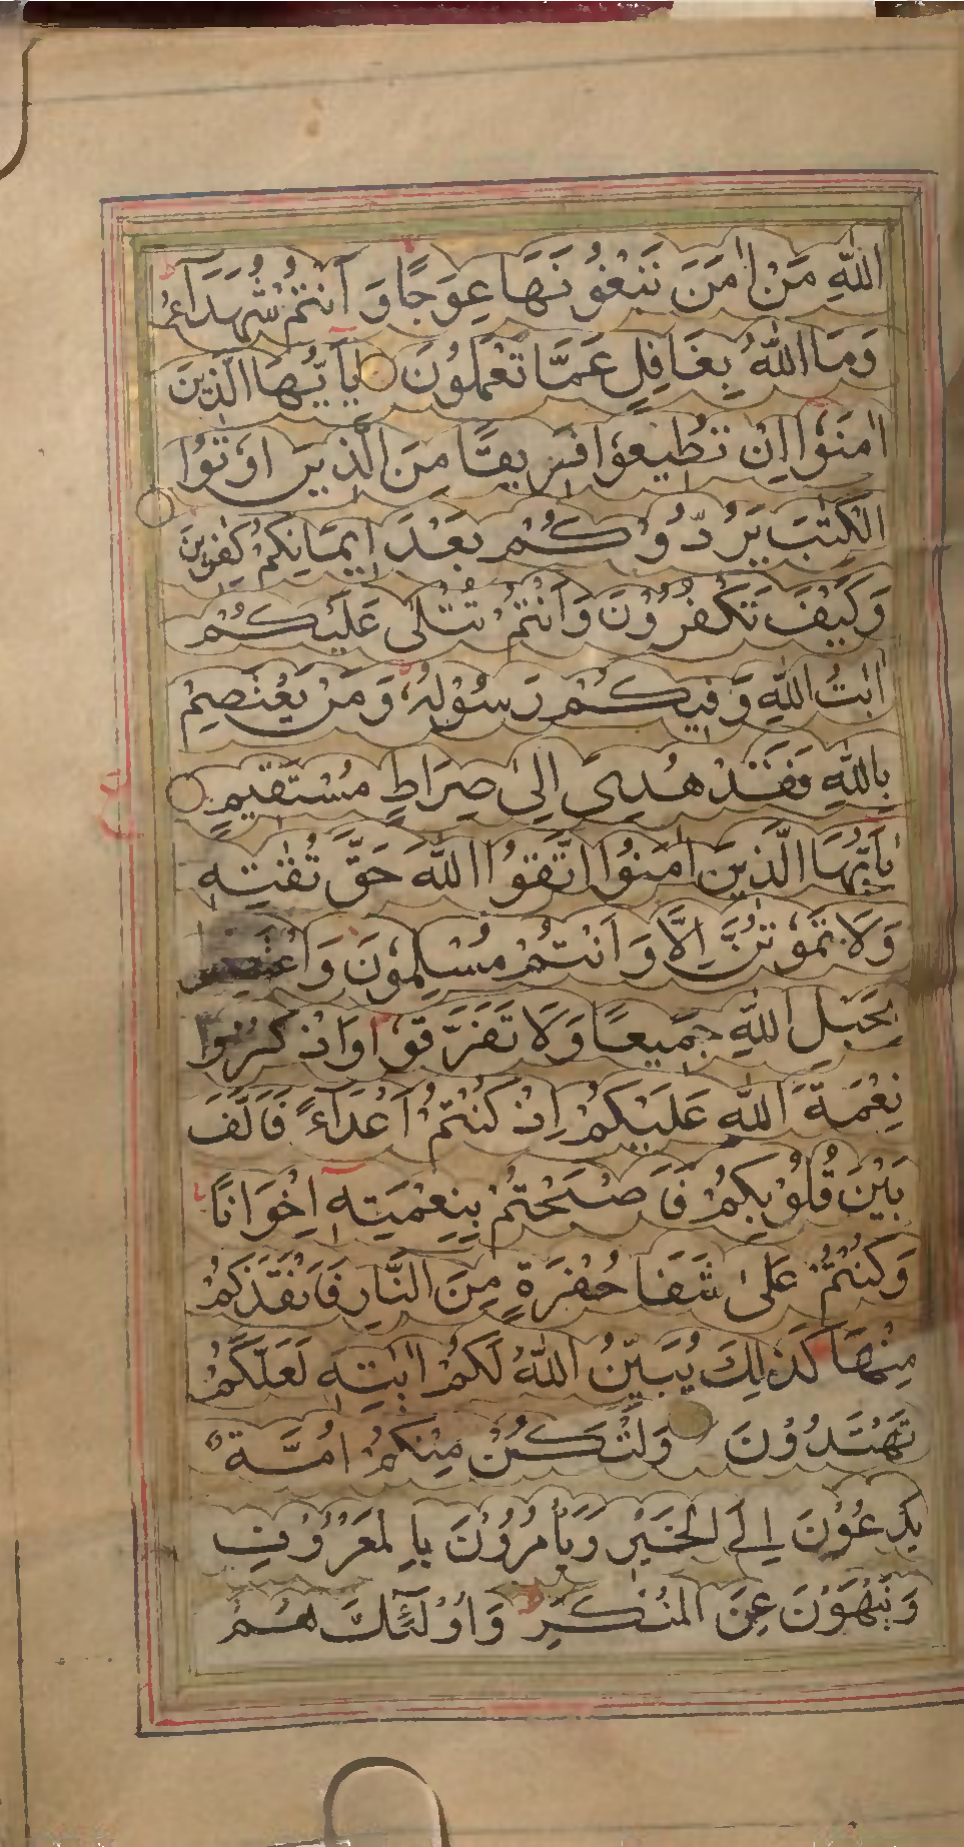 اللّٰهِ مَنْ اٰمَنَ تَبْغُوْنَهَا عِوَجًا وَّ اَنْتُمْ شُهَدَآءُ
وَمَا اللّٰهُ بِغَافِلٍ عَمَّا تَعْمَلُوْنَ يٰاَيُّهَا الَّذِيْنَ
اٰمَنُوْا اِنْ تُطِيْعُوْا فَرِيْقًا مِنَ الَّذِيْنَ اُوْتُوا
الْكِتٰبَ يَرُدُّوْكُمْ بَعْدَ اِيْمَانِكُمْ كٰفِرِيْنَ
وَكَيْفَ تَكْفُرُوْنَ وَاَنْتُمْ تُتْلٰى عَلَيْكُمْ
اٰيٰتُ اللّٰهِ وَفِيْكُمْ رَسُوْلُهُ وَمَنْ يَعْتَصِمْ
بِاللّٰهِ فَقَدْ هُدِىَ اِلٰى صِرَاطٍ مُسْتَقِيْمٍ
يٰاَيُّهَا الَّذِيْنَ اٰمَنُوا اتَّقُوْا اللّٰهَ حَقَّ تُقٰتِهٖ
وَلَا تَمُوْتُنَّ اِلَّا وَاَنْتُمْ مُسْلِمُوْنَ
بِحَبْلِ اللّٰهِ جَمِيْعًا وَلَا تَفَرَّقُوْا وَاذْكُرُوْا
نِعْمَةَ اللّٰهِ عَلَيْكُمْ اِذْ كُنْتُمْ اَعْدَآءً فَاَلَّفَ
بَيْنَ قُلُوْبِكُمْ فَاَصْبَحْتُمْ بِنِعْمَتِهٖ اِخْوَانًا
وَكُنْتُمْ عَلٰى شَفَا حُفْرَةٍ مِنَ النَّارِ فَاَنْقَذَكُمْ
مِنْهَا كَذٰلِكَ يُبَيِّنُ اللّٰهُ لَكُمْ اٰيٰتِهٖ لَعَلَّكُمْ
تَهْتَدُوْنَ وَلْتَكُنْ مِنْكُمْ اُمَّةٌ
يَدْعُوْنَ اِلَى الْخَيْرِ وَيَأْمُرُوْنَ بِالْمَعْرُوْفِ
وَيَنْهَوْنَ عَنِ الْمُنْكَرِ وَاُوْلٰٓئِكَ هُمُ